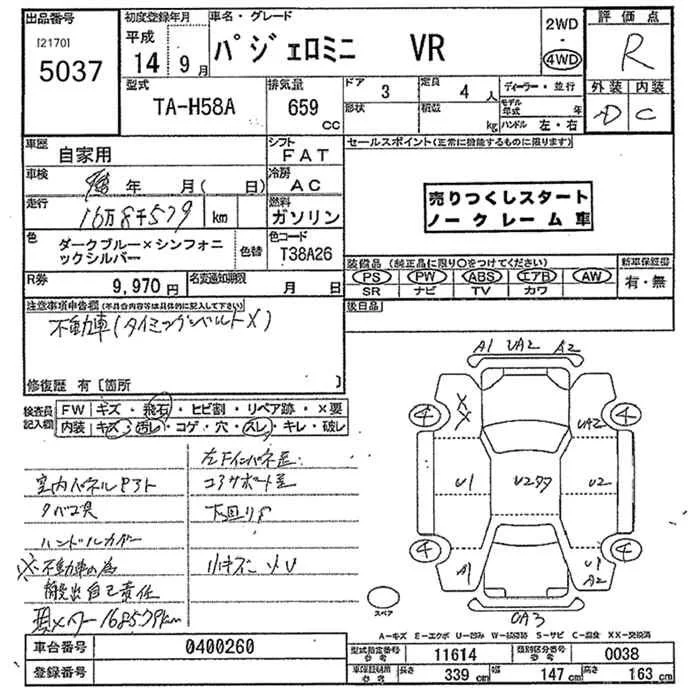 出品番号
[2170]
5037
初度登録年月
平成
14年9月
車名・グレード
パジェロミニ VR
2WD
・
4WD
評価点
R
型式
TA-H58A
排気量
659
CC
ドア
3
定員
4人
形状
積載
kg
ディーラー・並行
モデル年式 年
ハンドル 左・右
外装 内装
D C
車歴
自家用
シフト
FAT
セールスポイント(正常に機能するものに限ります)
車検
年 月(日)
冷房
AC
売りつくしスタート
ノークレーム車
走行
16万8千579
km
燃料
ガソリン
色
ダークブルー×シンフォニ
ックシルバー
色替
色コード
T38A26
装備品(純正品に限り○をつけてください)
PS PW ABS エアB AW
SR ナビ TV カワ
新車保証書
有・無
R券
9,970円
名変通知期限
月 日
注意事項申告欄(不具合内容等は具体的に記入して下さい)
不動車(タイミングベルト×)
後日品
修復歴 有[箇所 ]
検査員
記入欄
FW キズ・飛石・ヒビ割・リペア跡・×要
内装 キズ・汚レ・コゲ・穴・スレ・キレ・破レ
室内パネル
左下インパネ
コアサポート
タバコ臭
下回りサ
ハンドルカバー
※不動車の為
小キズ
搬出自己責任
168579km
A1 UA2 A2
4 4
XX
UA2
U1
U2
U2
4 4
A1
U1
A2
UA3
スペア
A-キズ E-エクボ U-凹み W-補修跡 S-サビ C-腐食 XX-交換済
車台番号
0400260
登録番号
型式指定番号
参考
11614
類別区分番号
参考
0038
車検証開示
参考
長さ
339cm
幅
147cm
高さ
163cm